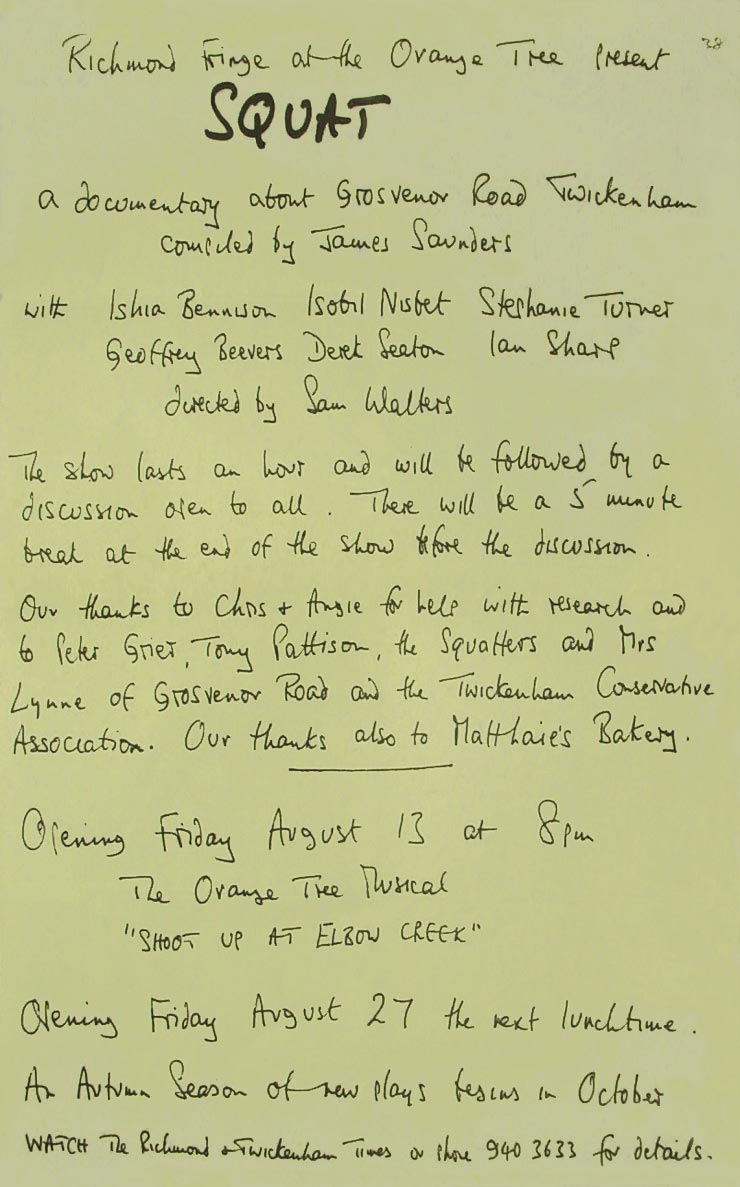 Richmond Fringe at the Orange Tree present
28
SQUAT
a documentary about Grosvenor Road Twickenham
compiled by James Saunders
with Ishia Bennison Isobil Nisbet Stephanie Turner
Geoffrey Beevers Derek Seaton Ian Sharp
directed by Sam Walters
The show lasts an hour and will be followed by a
discussion open to all. There will be a 5 minute
break at the end of the show before the discussion.
Our thanks to Chris + Angie for help with research and
to Peter Grier, Tony Pattison, the Squatters and Mrs
Lynne of Grosvenor Road and the Twickenham Conservative
Association. Our thanks also to Matthaie's Bakery.
Opening Friday August 13 at 8pm
The Orange Tree Musical
"SHOOT UP AT ELBOW CREEK"
Opening Friday August 27 the next lunchtime.
An Autumn Season of new plays begins in October
WATCH The Richmond + Twickenham Times or phone 940 3633 for details.